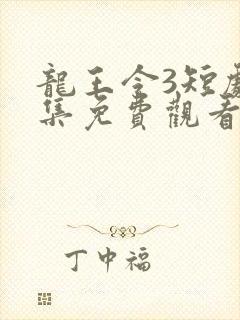 龍王令3短劇
集免費觀看
丁中福